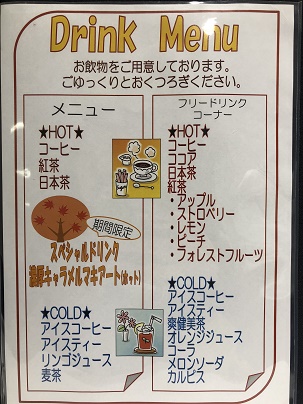 Drink Menu
お飲物をご用意しております。
ごゆっくりとおくつろぎください。
メニュー
★HOT★
コーヒー
紅茶
日本茶
期間限定
スペシャルドリンク
濃厚キャラメルマキアート(ホット)
★COLD★
アイスコーヒー
アイスティー
リンゴジュース
麦茶
フリードリンク
コーナー
★HOT★
コーヒー
ココア
日本茶
紅茶
・アップル
・ストロベリー
・レモン
・ピーチ
・フォレストフルーツ
★COLD★
アイスコーヒー
アイスティー
爽健美茶
オレンジジュース
コーラ
メロンソーダ
カルピス